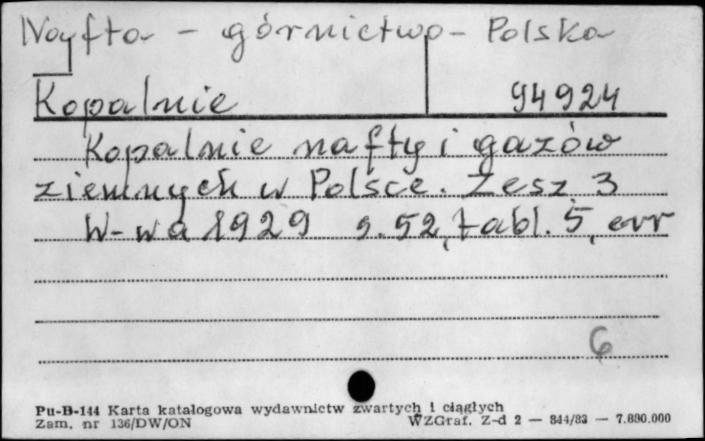 Nafta - górnictwo - Polska
Kopalnie 94924
Kopalnie nafty i gazów
ziemnych w Polsce. Zesz. 3
W-wa 1929 s. 52, tabl. 5, err
6
Pu-B-144 Karta katalogowa wydawnictw zwartych i ciągłych
Zam. nr 136/DW/ON WZGraf. Z-d 2 — 844/83 — 7.880.000